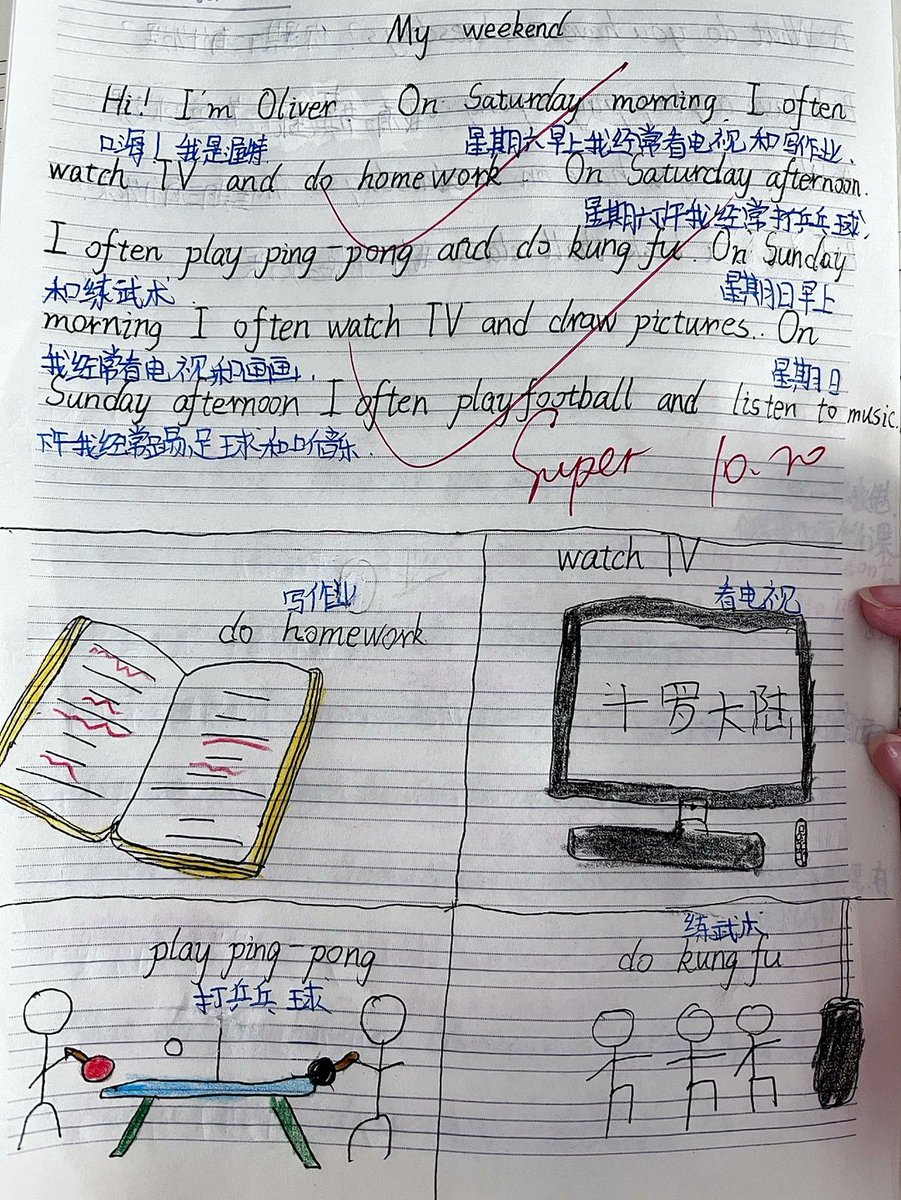 My weekend
Hi! I'm Oliver. On Saturday morning I often
星期六早上我经常看电视和写作业.
watch TV and do homework On Saturday afternoon.
星期六下午我经常打乒乓球,
I often play ping-pong and do kung fu. On Sunday
和练武术. 星期日早上
morning I often watch TV and draw pictures.. On
我经常看电视和画画. 星期日
Sunday afternoon I often play football and listen to music.
下午我经常踢足球和听音乐.
Super 10.20
watch TV
看电视
写作业
do homework
斗罗大陆
练武术
play ping-pong do kung fu
打乒乓球